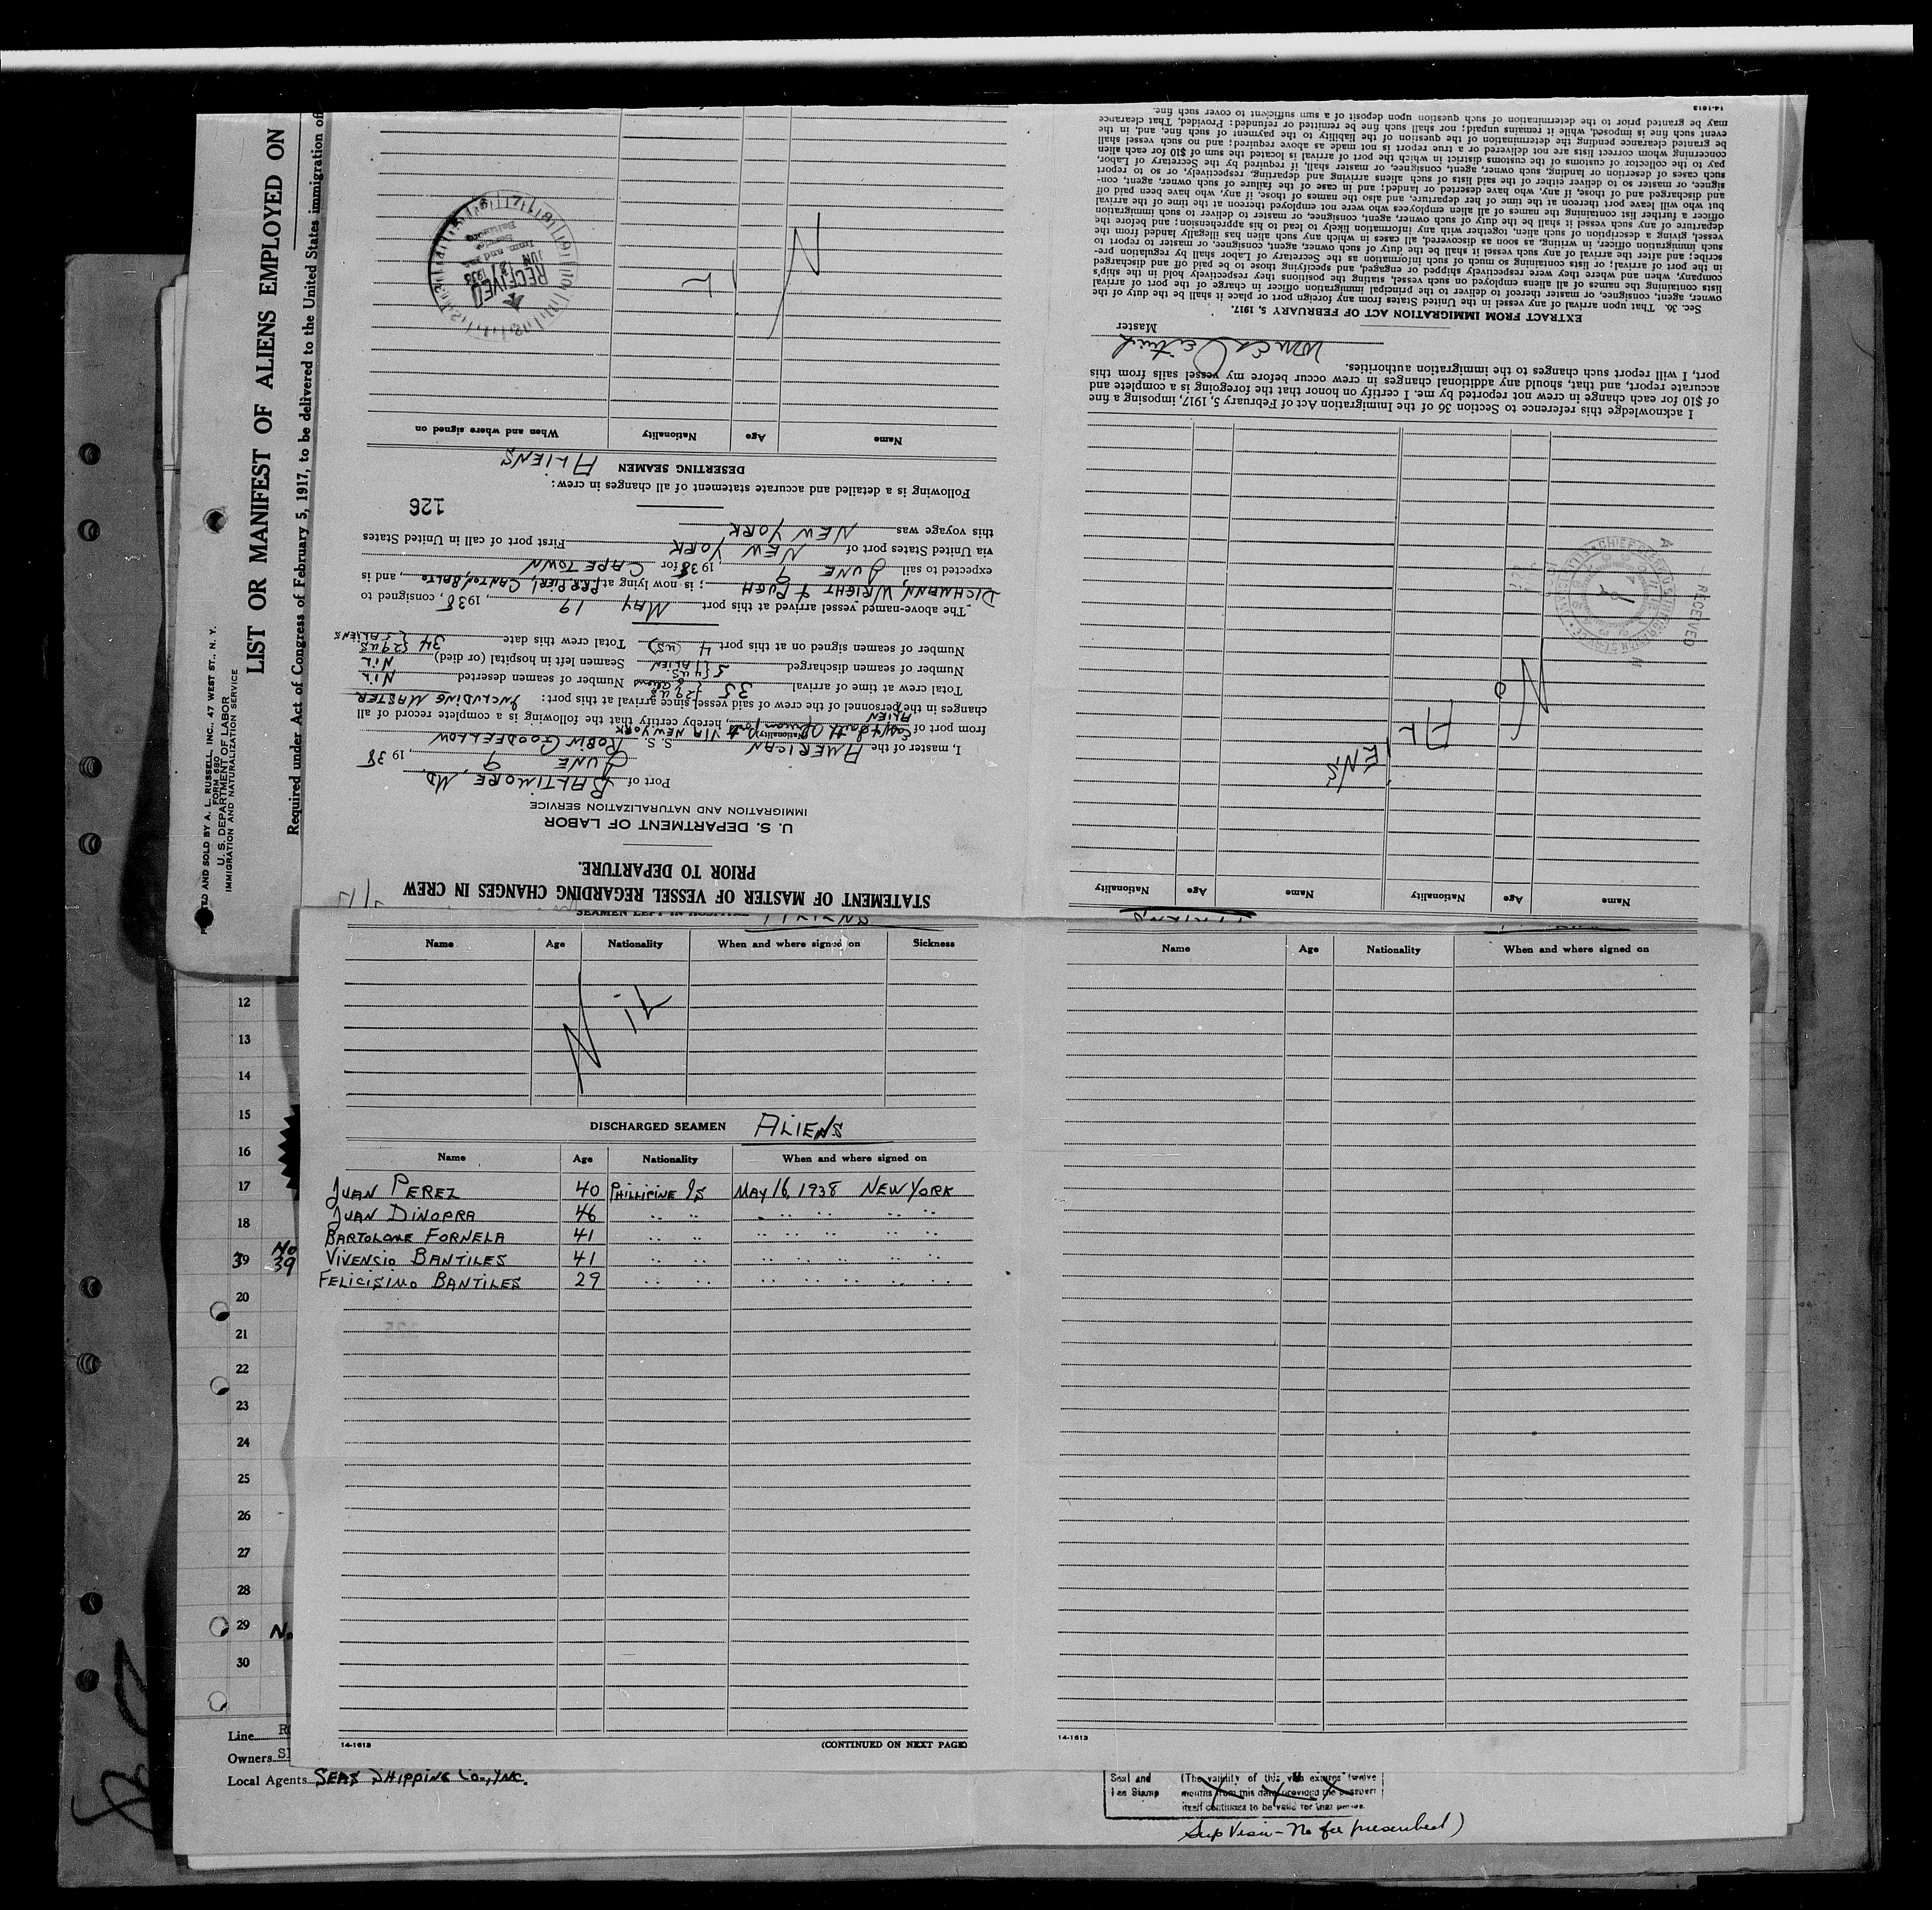 PRINTED AND SOLD BY A. L. RUSSELL, INC., 47 WEST ST., N. Y.
FORM 680
U. S. DEPARTMENT OF LABOR
IMMIGRATION AND NATURALIZATION SERVICE
LIST OR MANIFEST OF ALIENS EMPLOYED ON
Required under Act of Congress of February 5, 1917, to be delivered to the United States immigration of
STATEMENT OF MASTER OF VESSEL REGARDING CHANGES IN CREW
PRIOR TO DEPARTURE.
U. S. DEPARTMENT OF LABOR
IMMIGRATION AND NATURALIZATION SERVICE
Port of BALTIMORE, MD.
JUNE 9, 1938
I, master of the AMERICAN S. S. ROBIN GOODFELLOW
(Nationality)
from port of East & South African Ports VIA NEW YORK, hereby certify that the following is a complete record of all
ALIEN
changes in the personnel of the crew of said vessel since arrival at this port: INCLUDING MASTER
Total crew at time of arrival 35 {29 US 6 ALIENS Number of seamen deserted NIL
Number of seamen discharged 5 {4 US 1 ALIEN Seamen left in hospital (or died) NIL
Number of seamen signed on at this port 4 (US) Total crew this date 34 {29 US 5 ALIENS
The above-named vessel arrived at this port MAY 19, 1938, consigned to
DICHMANN, WRIGHT & PUGH; is now lying at PRR PIER 1, CANTON, BALTO, and is
expected to sail JUNE 9, 1938 for CAPE TOWN
via United States port of NEW YORK First port of call in United States
this voyage was NEW YORK
126
Following is a detailed and accurate statement of all changes in crew:
DESERTING SEAMEN ALIENS
Name Age Nationality When and where signed on
N I L
RECEIVED
JUN
1938
Baltimore
Name Age Nationality Name Age Nationality
No ALIENS
RECEIVED
I acknowledge this reference to Section 36 of the Immigration Act of February 5, 1917, imposing a fine
of $10 for each change in crew not reported by me. I certify on honor that the foregoing is a complete and
accurate report, and that, should any additional changes in crew occur before my vessel sails from this
port, I will report such changes to the immigration authorities.
Master
EXTRACT FROM IMMIGRATION ACT OF FEBRUARY 5, 1917.
Sec. 36. That upon arrival of any vessel in the United States from any foreign port or place it shall be the duty of the
owner, agent, consignee, or master thereof to deliver to the principal immigration officer in charge of the port of arrival
lists containing the names of all aliens employed on such vessel, stating the positions they respectively hold in the ship's
company, when and where they were respectively shipped or engaged, and specifying those to be paid off and discharged
in the port of arrival; or lists containing so much of such information as the Secretary of Labor shall by regulation pre-
scribe; and after the arrival of any such vessel it shall be the duty of such owner, agent, consignee, or master to report to
such immigration officer, in writing, as soon as discovered, all cases in which any such alien has illegally landed from the
vessel, giving a description of such alien, together with any information likely to lead to his apprehension; and before the
departure of any such vessel it shall be the duty of such owner, agent, consignee, or master to deliver to such immigration
officer a further list containing the names of all alien employees who were not employed thereon at the time of the arrival
but who will leave port thereon at the time of her departure, and also the names of those, if any, who have been paid off
and discharged, and of those, if any, who have deserted or landed; and in case of the failure of such owner, agent, con-
signee, or master so to deliver either of the said lists of such aliens arriving and departing, respectively, or so to report
such cases of desertion or landing, such owner, agent, consignee, or master, shall, if required by the Secretary of Labor,
pay to the collector of customs of the customs district in which the port of arrival is located the sum of $10 for each alien
concerning whom correct lists are not delivered or a true report is not made as above required; and no such vessel shall
be granted clearance pending the determination of the question of the liability to the payment of such fine, and, in the
event such fine is imposed, while it remains unpaid; nor shall such fine be remitted or refunded: Provided, That clearance
may be granted prior to the determination of such question upon deposit of a sum sufficient to cover such fine.
14-1613
SEAMEN LEFT IN HOSPITAL ALIENS
Name Age Nationality When and where signed on Sickness
Nil
DISCHARGED SEAMEN ALIENS
Name Age Nationality When and where signed on
JUAN PEREZ 40 PHILLIPINE IS MAY 16, 1938 NEW YORK
JUAN DINOPRA 46 " " " " " " "
BARTOLOME FORNELA 41 " " " " " " "
VIVENCIO BANTILES 41 " " " " " " "
FELICISIMO BANTILES 29 " " " " " " "
14-1613 (CONTINUED ON NEXT PAGE)
Name Age Nationality When and where signed on
14-1613
12
13
14
15
16
17
18
39 No 39
20
21
22
23
24
25
26
27
28
29 No
30
Line RO
Owners SE
Local Agents SEAS SHIPPING Co., INC.
Seal and Fee Stamp
(The validity of this visa expires twelve
months from this date provided the passport
itself continues to be valid for that period.
Sup Visa - No fee prescribed)